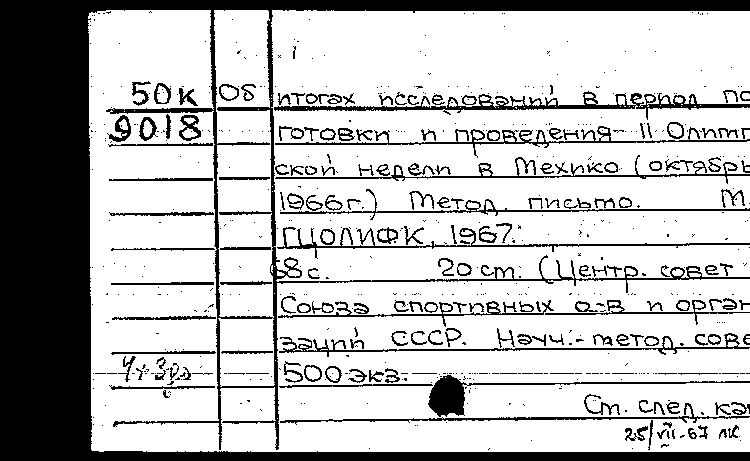 50К Об итогах исследований в период по
9018 готовки и проведения II Олимп
ской недели в Мехико (октябрь
1966г.) Метод. письмо. М.
ГЦОЛИФК, 1967.
68с. 20 см. (Центр. совет
Союза спортивных о-в и орган
заций СССР. Науч.-метод. сове
500 экз.
См. след. ка
25/VII-67 лк